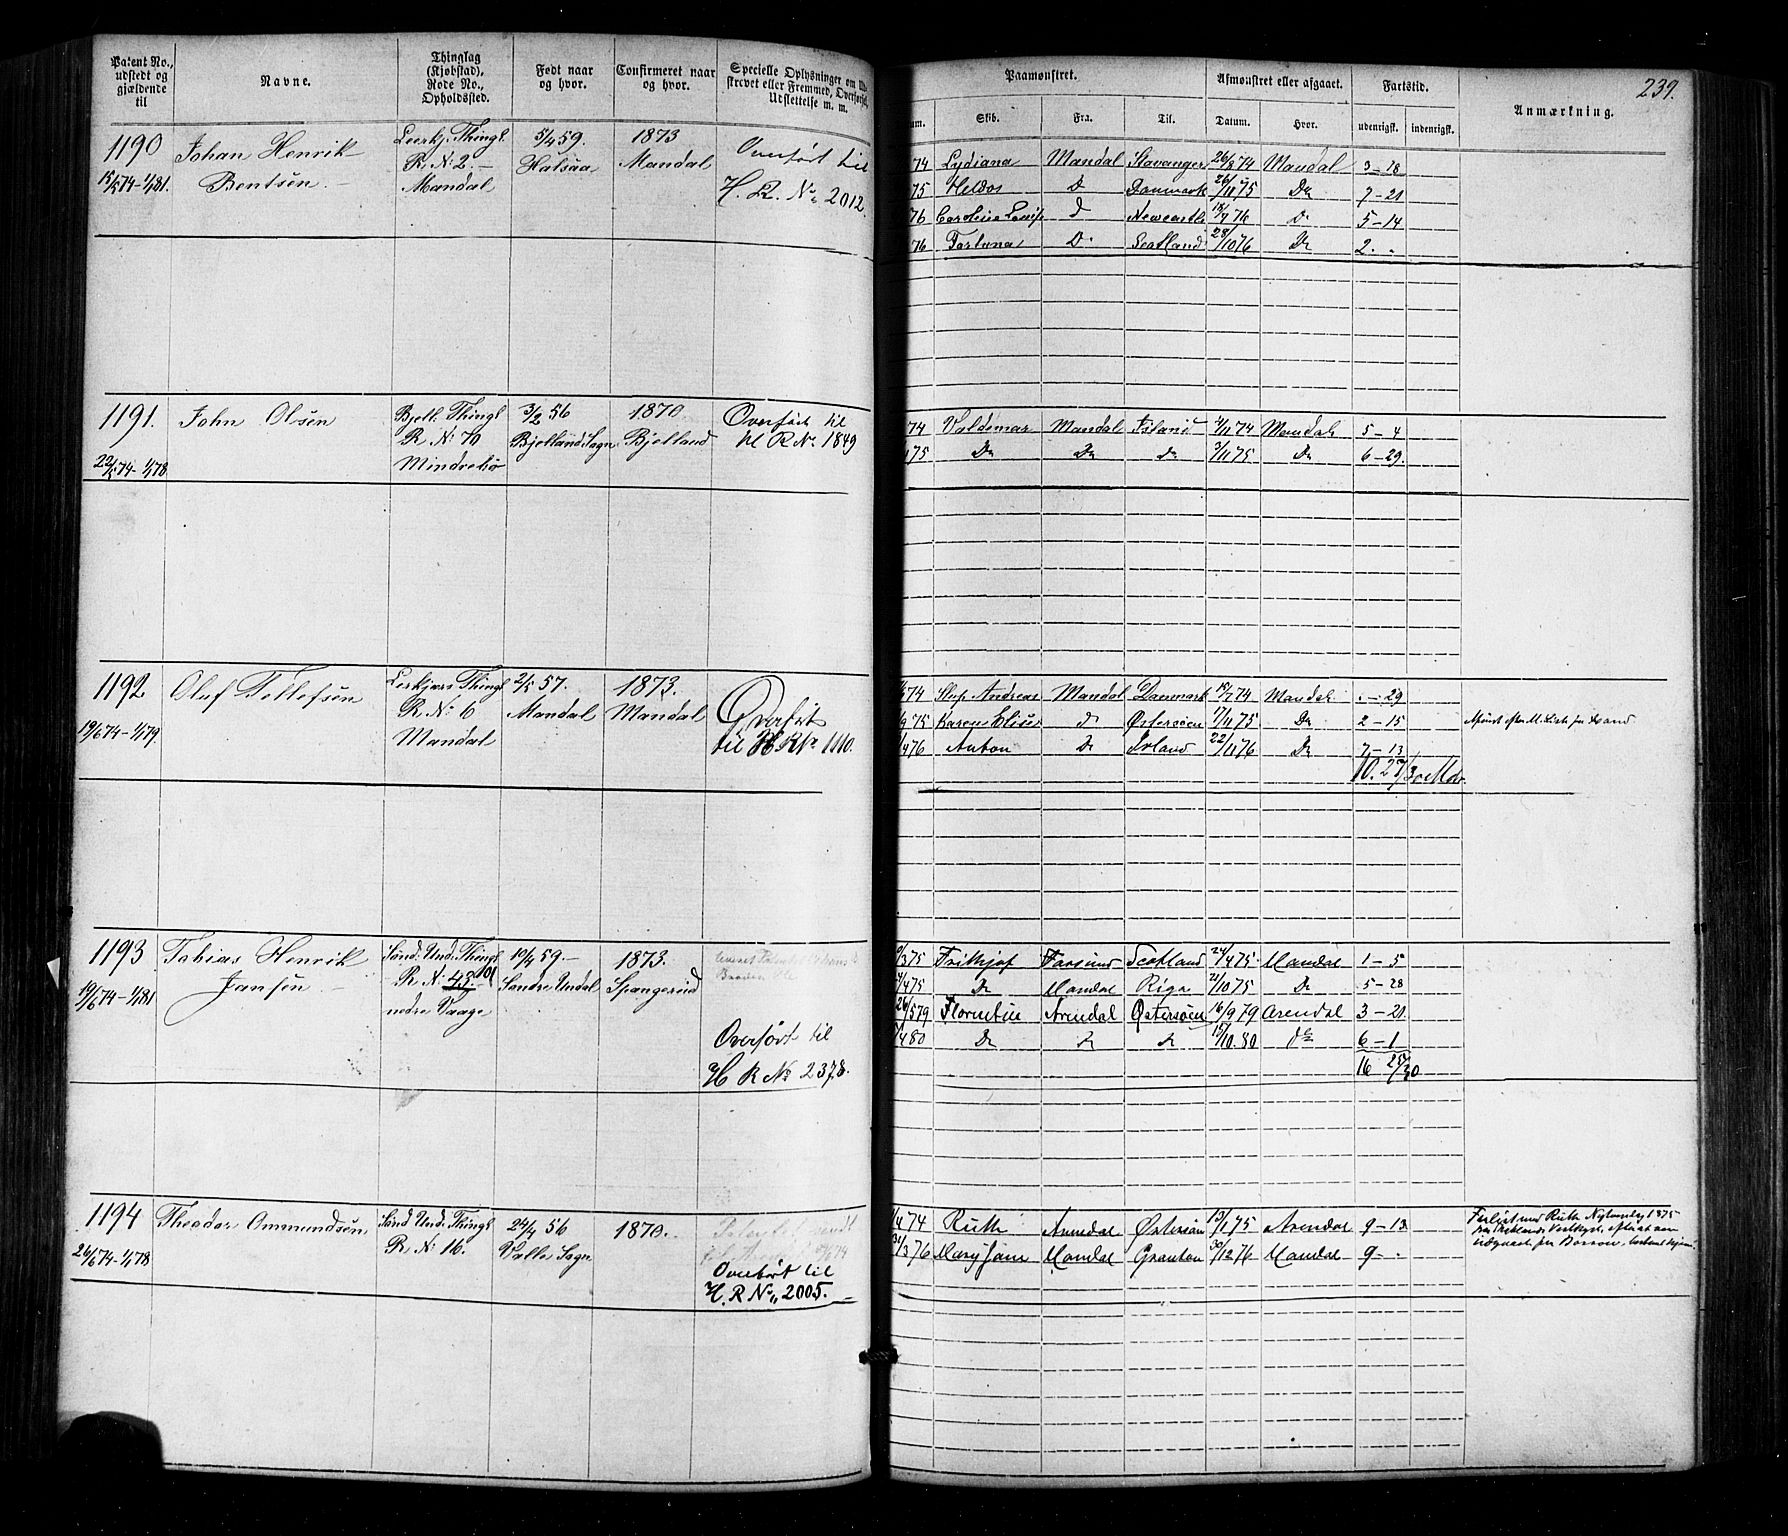 Patent No., udstedt og gjældende til
Navne.
Thinglag (Kjøbstad), Rode No., Opholdssted.
Født naar og hvor.
Confirmeret naar og hvor.
Specielle Oplysninger om
Udslettelse m. m.
1190
Johan Henrik
Bentsen
R. No: 2.
Mandal
5/4 59.
Halsaa
1873
Mandal
Overført til
H. R. No. 2012.
1191.
John Olsen
Bjell. Thingl
R No: 70
Mindrebø
3/2 56
Bjelland Sogn
1870.
Bjelland
Overført til
H R No. 1849
22/5 74-1/1 78
1192.
Oluf Tellefsen
R No: 6
Mandal
2/5 57.
Mandal
1873.
Mandal
Overført
til H R No. 1110.
19/6 74-1/1 79.
1193
Tobias Henrik
Jansen
Sønd. Und. Thingl
R. No: 43.
nedre Vaage
19/4 59.
Søndre Undal
1873.
Spangereid
Overført til
H R No 2378.
19/6 74-1/1 81
1194
Theodor Ommundsen
Sønd Und. Thingl
R. No: 16.
24/4 56
Valle Sogn
1870.
Overført til
H. R No. 2005.
26/6 74-1/1 78
239.
Paamønstret.
Afmønstret eller afgaaet.
Fartstid.
Anmærkning.
Skib.
Fra.
Til.
Datum.
Hvor.
udenrigsk.
indenrigsk.
74 Lydiana Mandal Stavanger 26/8 74 Mandal 3-18
75 Heldos Do Danmark 26/11 75 Do 7-21
76 Caroline Louise Do Newcastle 18/9 76 Do 5-14
76 Fortuna Do Scotland 28/10 76 Do 2
74 Valdemar Mandal Island 4/11 74 Mandal 5-4
75 Do Do Do 3/11 75 Do 6-29.
74 Slup Andreas Mandal Danmark 15/7 74 Mandal -29
75 Karen Elise Do Østersøen 17/11 75 Do 2-15
76 Anton Do Irland 22/11 76 Do 7-13
10. 27/30 Mdr.
75 Frithjof Farsund Scotland 24/4 75 Mandal 1-5
75 Do Mandal Riga 21/10 75 Do 5-28
26/5 79 Florentine Arendal Østersøen 16/9 79 Arendal 3-21
80 Do Do Do 15/10 80 Do 6-1
16 25/30
74 Ruth Arendal Østersøen 13/1 75 Arendal 9-13
31/3 76 Mary Jane Mandal Granton 30/12 76 Mandal 9-